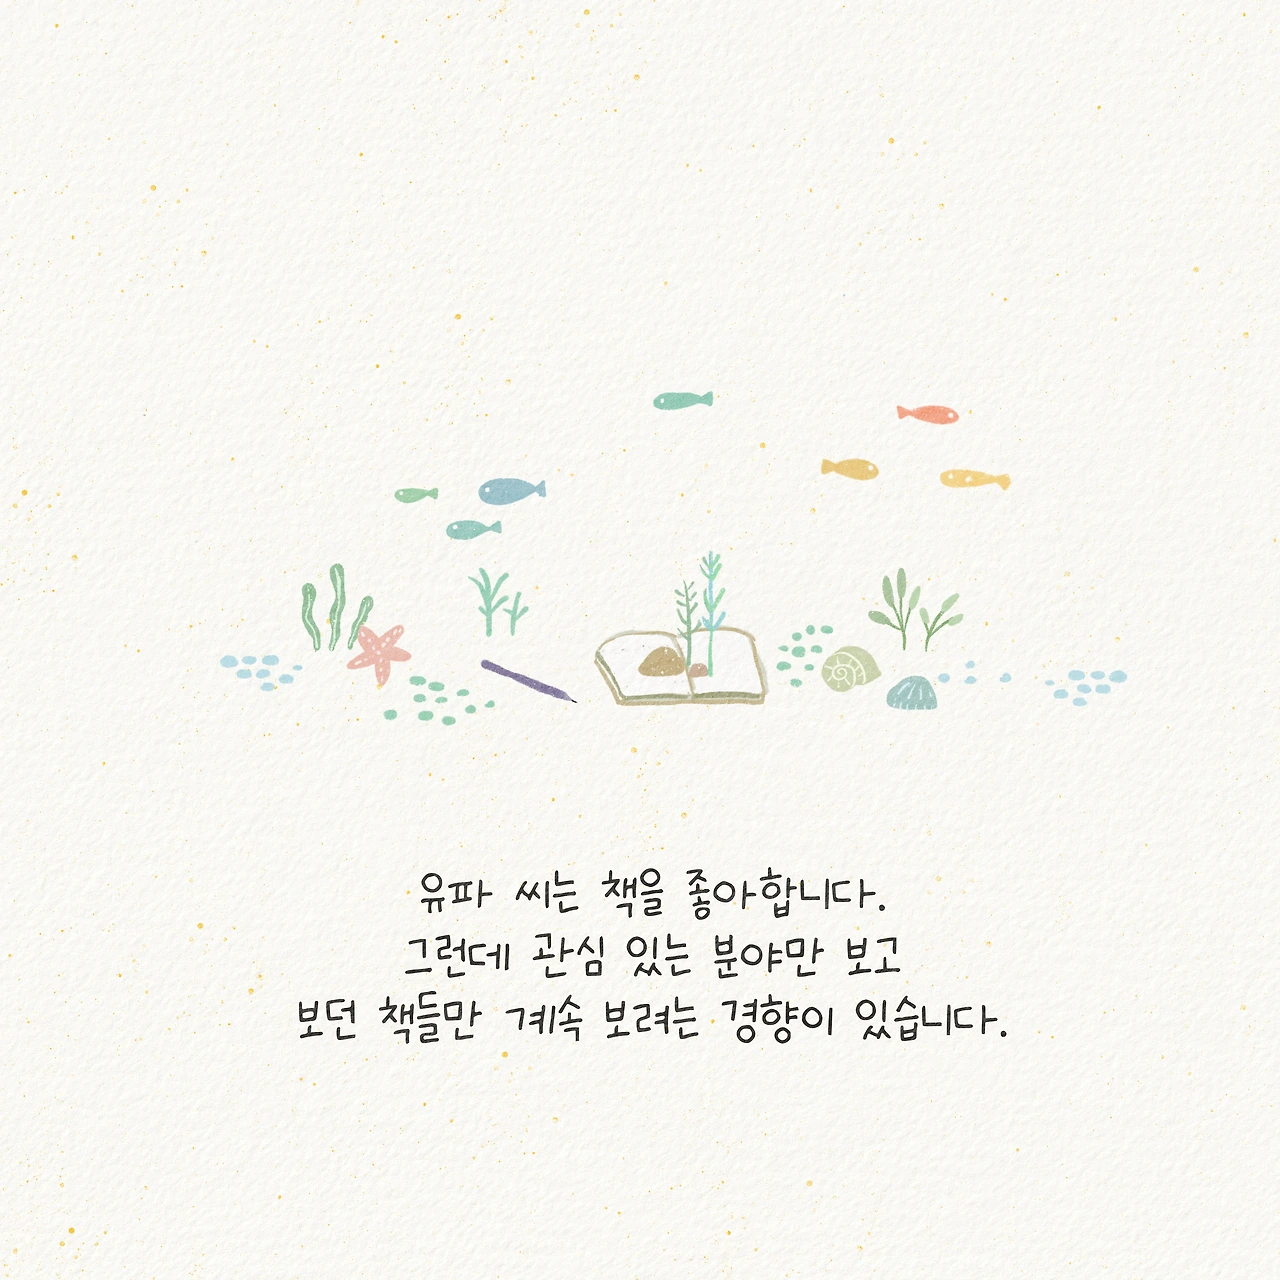 유파 씨는 책을 좋아합니다.
그런데 관심 있는 분야만 보고
보던 책들만 계속 보려는 경향이 있습니다.